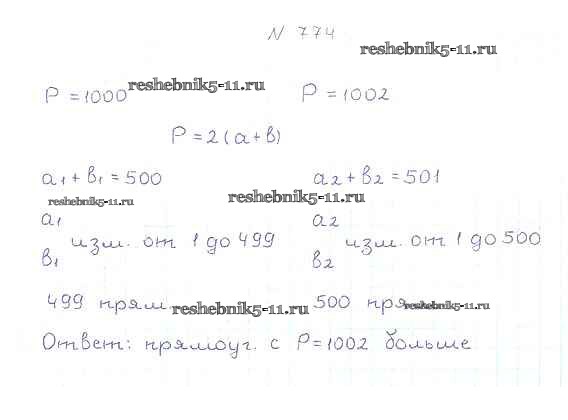 N 774
reshebnik5-11.ru
P = 1000 reshebnik5-11.ru P = 1002
P = 2 (a + b)
a1 + b1 = 500 a2 + b2 = 501
reshebnik5-11.ru reshebnik5-11.ru
a1 a2
изм. от 1 до 499 изм. от 1 до 500
b1 b2
499 прям. reshebnik5-11.ru 500 пря reshebnik5-11.ru
Ответ: прямоуг. с P = 1002 больше